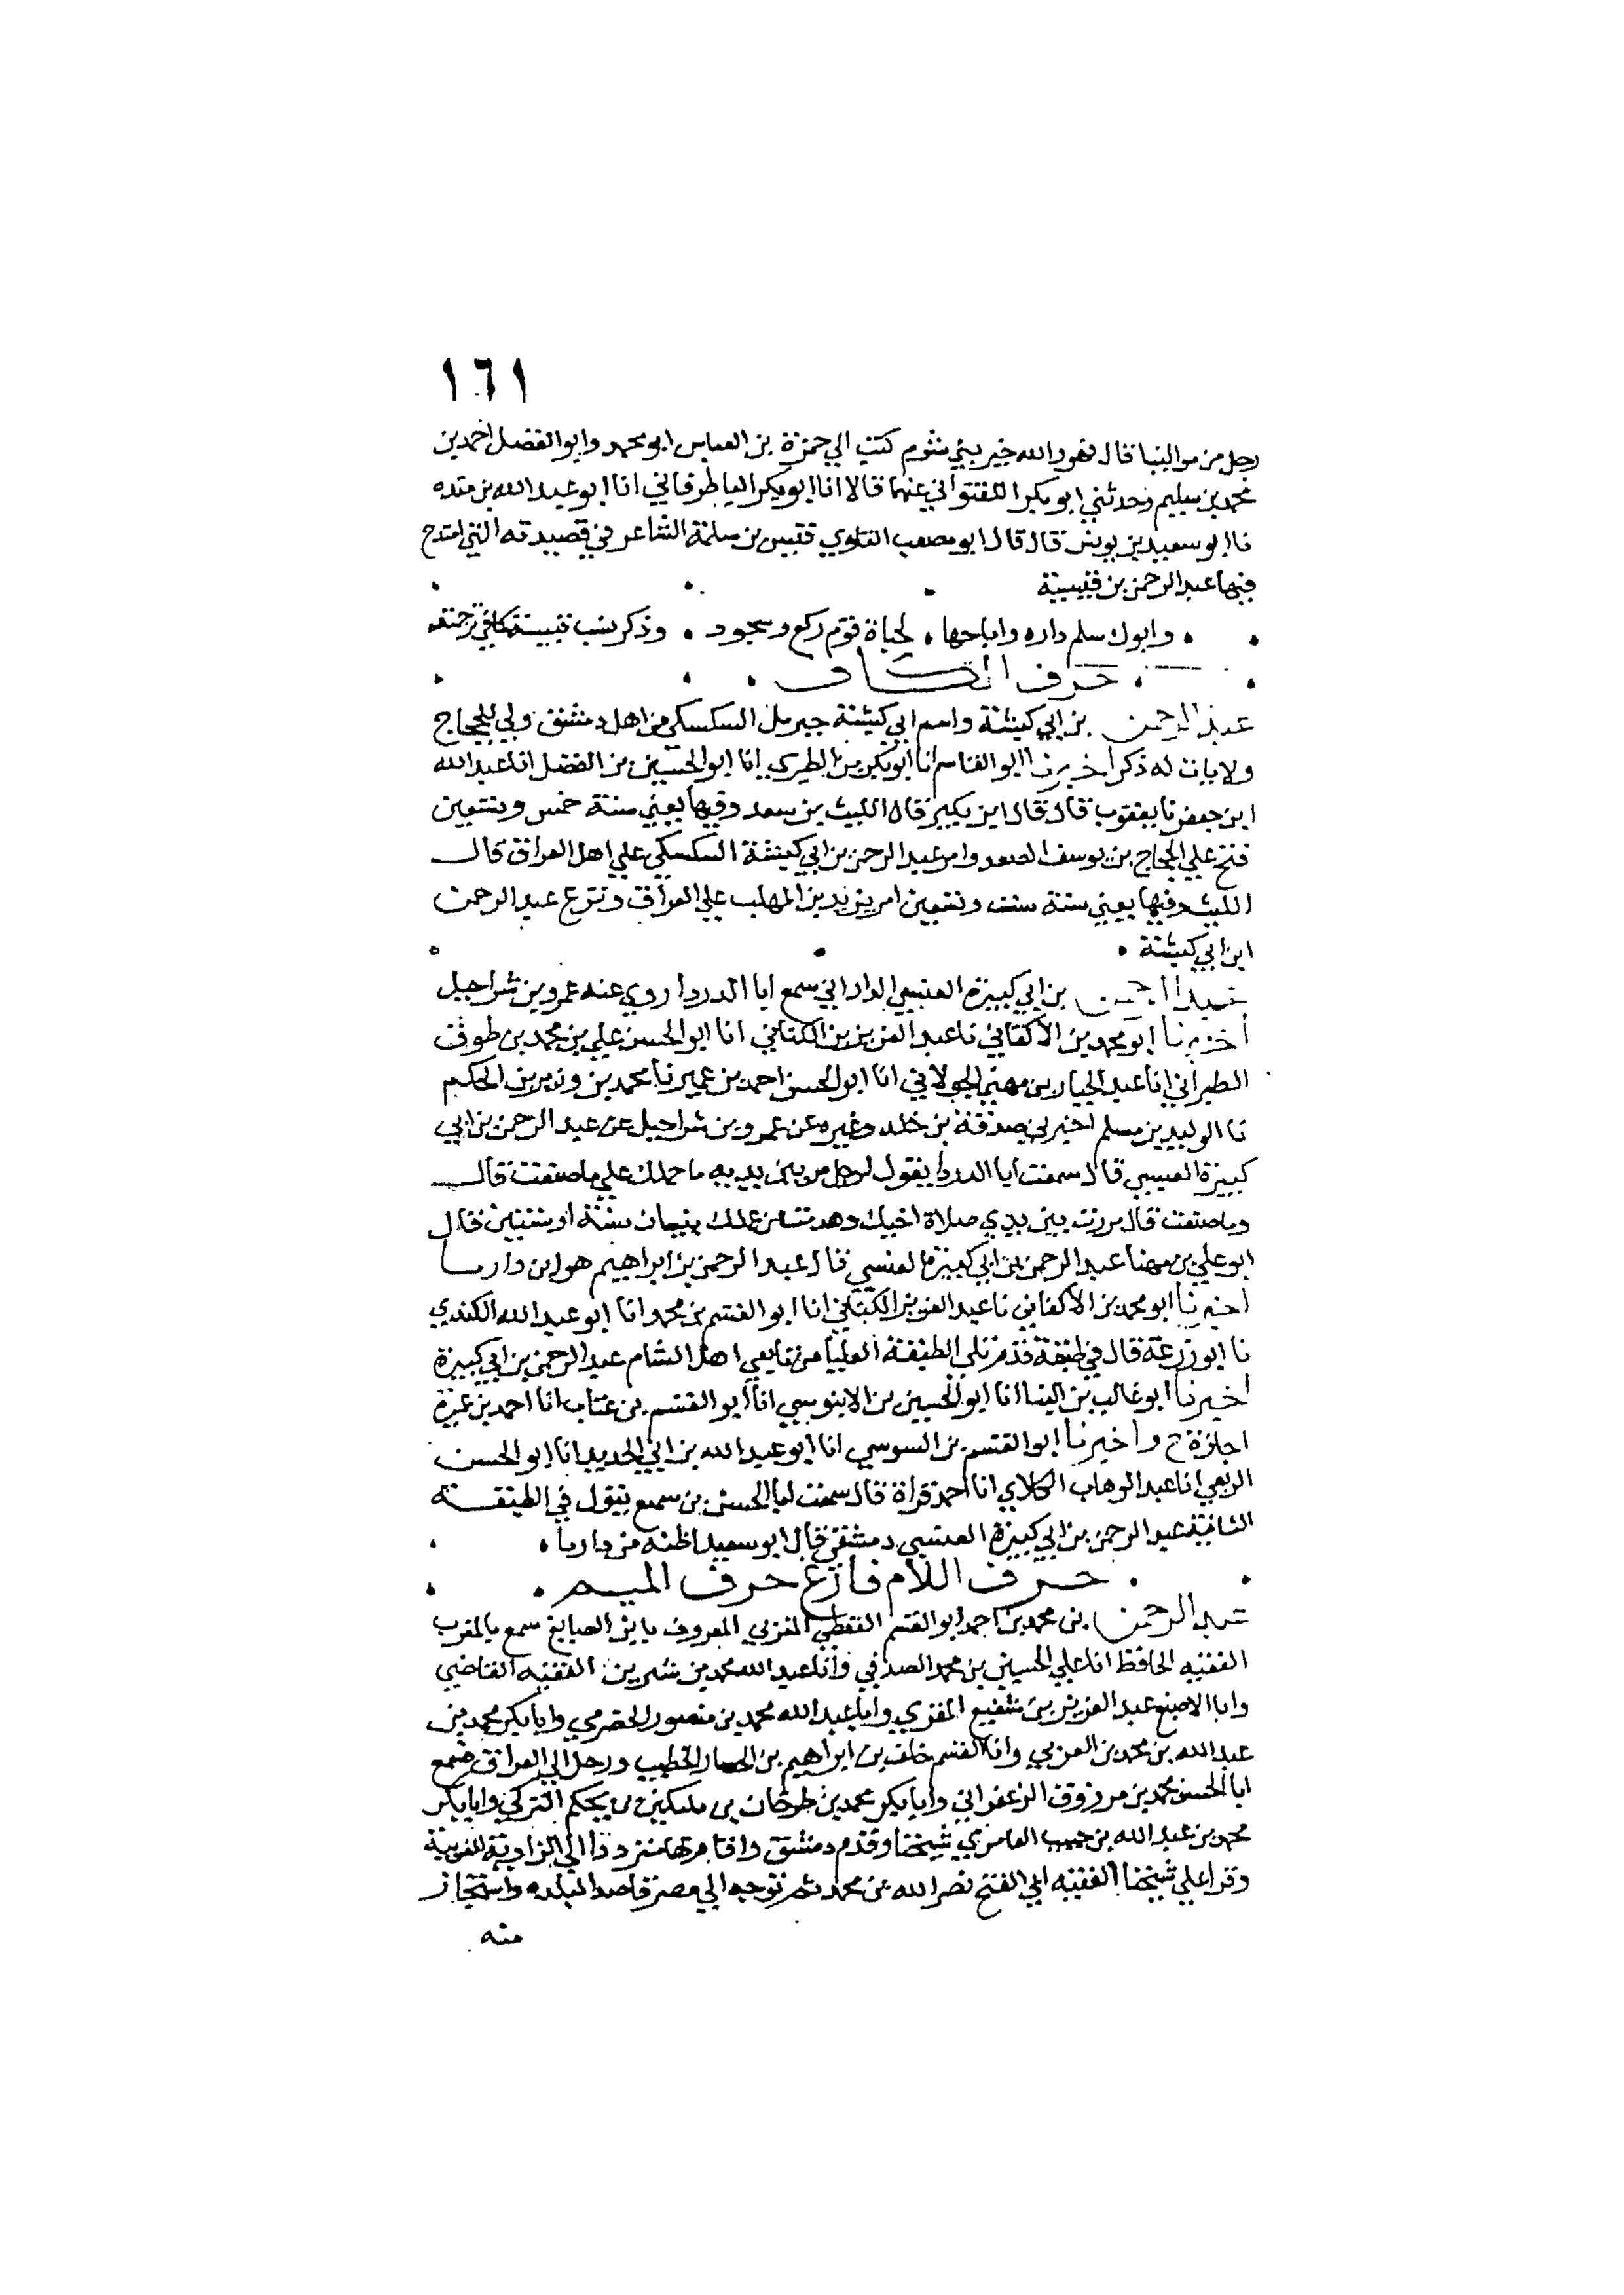 ١٦١
رجل من موالينا قال فهو والله خير بني شوم كتب الي حمزة بن العباس ابو محمد وابو الفضل احمد بن
محمد بن سليم وحدثني ابو بكر اللفتواني عنهما قالا انا ابو بكر الباطرقاني انا ابو عبد الله بن منده
نا ابو سعيد بن يونس قال قال ابو مصعب البلوي قيس بن سلمة الشاعر في قصيدته التي امتدح
فيها عبد الرحمن بن قتيبة
وابوك سلم داره واباحها لجباة قوم ركع وسجود وذكر نسب قتيبة كما في ترجمته
حرف الكاف
عبد الرحمن بن ابي كبشة واسم ابي كبشة جبريل السكسكي من اهل دمشق ولي للحجاج
ولايات له ذكر اخبرنا ابو القاسم انا ابو بكر بن الطبري انا ابو الحسين بن الفضل انا عبد الله
ابن جعفر نا يعقوب قال قال ابن بكير قال الليث بن سعد وفيها يعني سنة خمس وتسعين
فتح علي الحجاج بن يوسف الصعد وامر عبد الرحمن بن ابي كبشة السكسكي علي اهل العراق قال
الليث وفيها يعني سنة ست وتسعين امر يزيد بن المهلب علي العراق ونزع عبد الرحمن
ابن ابي كبشة
عبد الرحمن بن ابي كبيرة العنسي الداراني سمع ابا الدردا روي عنه عمرو بن شراحيل
اخبرنا ابو محمد بن الاكفاني نا عبد العزيز بن الكتاني انا ابو الحسن علي بن محمد بن طوق
الطبراني انا عبد الجبار بن مهني الخولاني انا ابو الحسن احمد بن عمير نا محمد بن وزير بن الحكم
نا الوليد بن مسلم اخبرني صدقة بن خلد وغيره عن عمرو بن شراحيل عن عبد الرحمن بن ابي
كبيرة العنسي قال سمعت ابا الدردا يقول لرجل مر بين يديه ما حملك علي ما صنعت قال
وما صنعت قال مررت بين يدي صلاة اخيك وهدمت من عملك بنيان سنة او سنتين قال
ابو علي بن مهنا عبد الرحمن بن ابي كبيرة العنسي قال عبد الرحمن بن ابراهيم هو من داريا
اخبرنا ابو محمد بن الاكفاني نا عبد العزيز الكتاني انا ابو القسم بن محمد انا ابو عبد الله الكندي
نا ابو زرعة قال في طبقة قدم تلي الطبقة العليا من تابعي اهل الشام عبد الرحمن بن ابي كبيرة
اخبرنا ابو غالب بن البنا انا ابو الحسين بن الابنوسي انا ابو القسم بن عتاب انا احمد بن عمير
اجازة ح واخبرنا ابو القسم بن السوسي انا ابو عبد الله بن ابي الحديد انا ابو الحسن
الربعي انا عبد الوهاب الكلابي انا احمد قراة قال سمعت ابا الحسن بن سميع يقول في الطبقة
الثانية عبد الرحمن بن ابي كبيرة العنسي دمشقي قال ابو سعيد اظنه من داريا
حرف اللام فارغ حرف الميم
عبد الرحمن بن محمد بن احمد ابو القسم اللفطي المغربي المعروف بابن الصايغ سمع بالمغرب
الفقيه الحافظ ابا علي الحسين بن محمد الصدفي وابا عبد الله محمد بن شبرين الفقيه القاضي
وابا الاصبغ عبد العزيز بن شفيع المقري وابا عبد الله محمد بن منصور الحضرمي وابا بكر محمد بن
عبد الله بن محمد بن العربي وابا القسم خلف بن ابراهيم بن الحصار الخطيب ورحل الي العراق فسمع
ابا الحسن محمد بن مرزوق الزعفراني وابا بكر محمد بن طرخان بن بلتكين بن بجكم التركي وابا بكر
محمد بن عبد الله بن حبيب العامري شيخنا وقدم دمشق واقام بها مترددا الي الزاوية الغربية
وقرا علي شيخنا الفقيه ابي الفتح نصر الله بن محمد ثم توجه الي مصر قاصدا لبلده واستجاز
منه